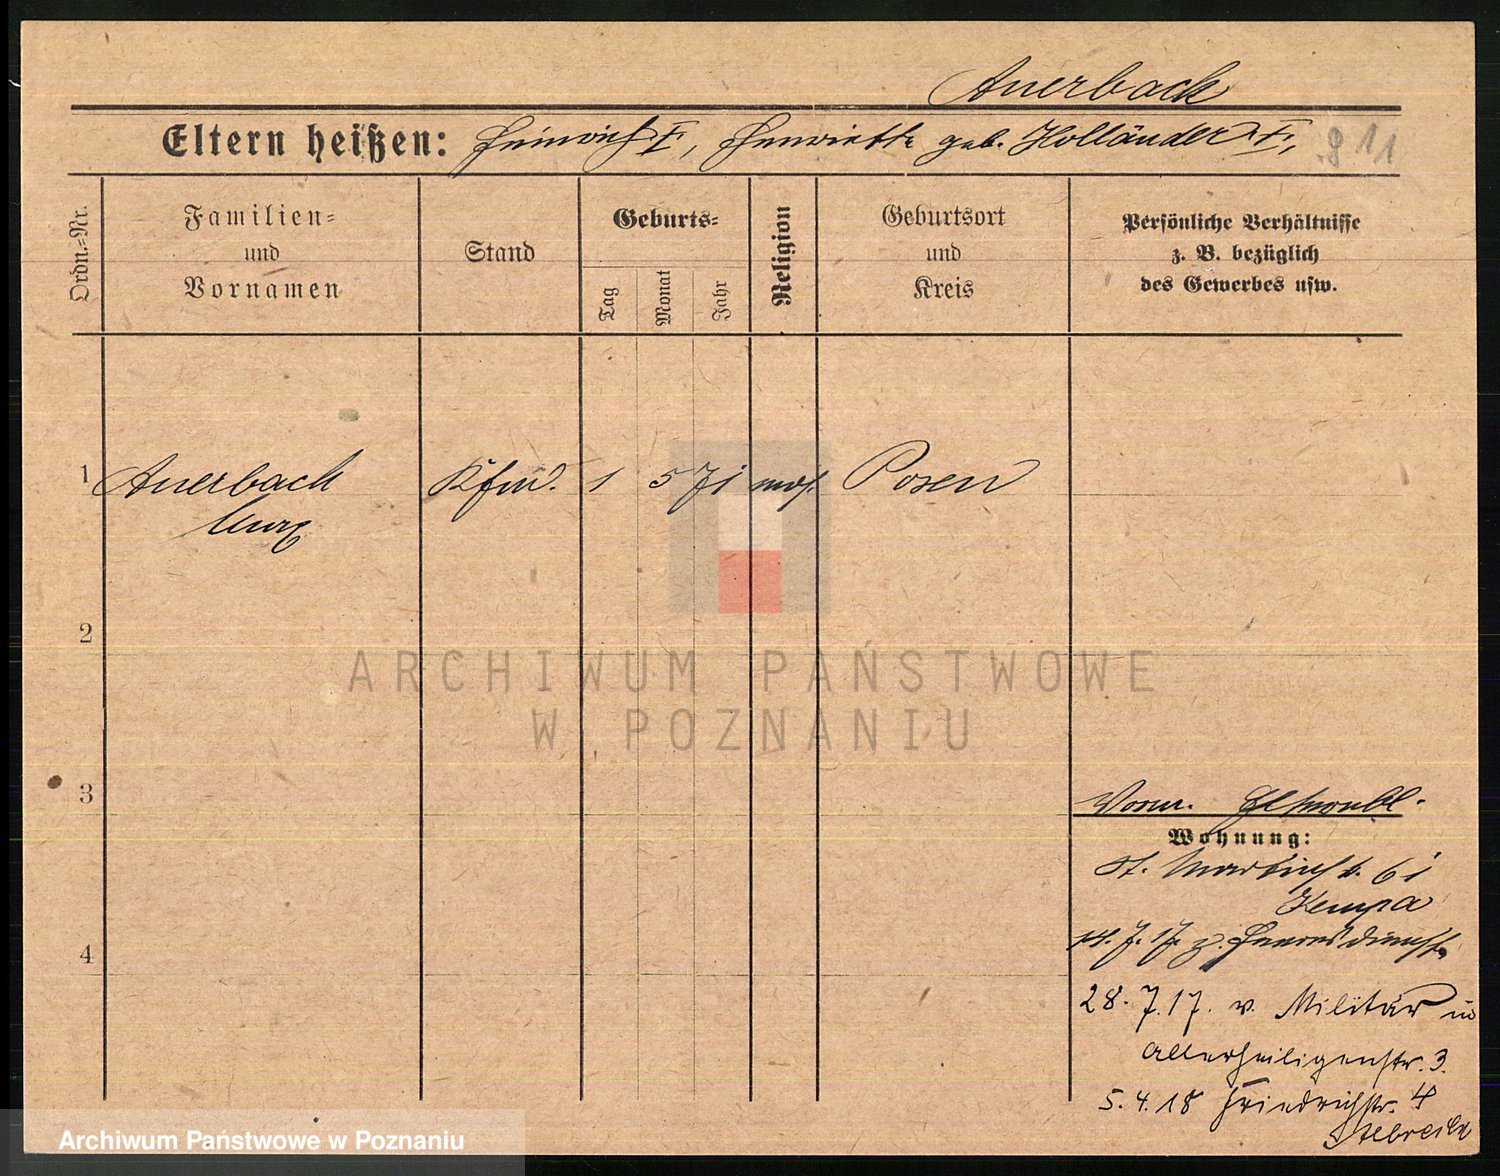 Auerbach
Eltern heißen: Heinrich †, Henriette geb. Holländer †,
811
Ordn.=Nr.
Familien=
und
Vornamen
Stand
Geburts=
Tag
Monat
Jahr
Religion
Geburtsort
und
Kreis
Persönliche Verhältnisse
z. B. bezüglich
des Gewerbes usw.
1 Auerbach Kfm. 1 5 71 mos. Posen
2
ARCHIWUM PAŃSTWOWE
W POZNANIU
3
Wohnung:
St. Martinstr. 61
Kempa
4
14. 7. 17. z. Heeresdienst
28. 7. 17. v. Militär in
Allerheiligenstr. 3.
5. 4. 18 Friedrichstr. 4
Archiwum Państwowe w Poznaniu